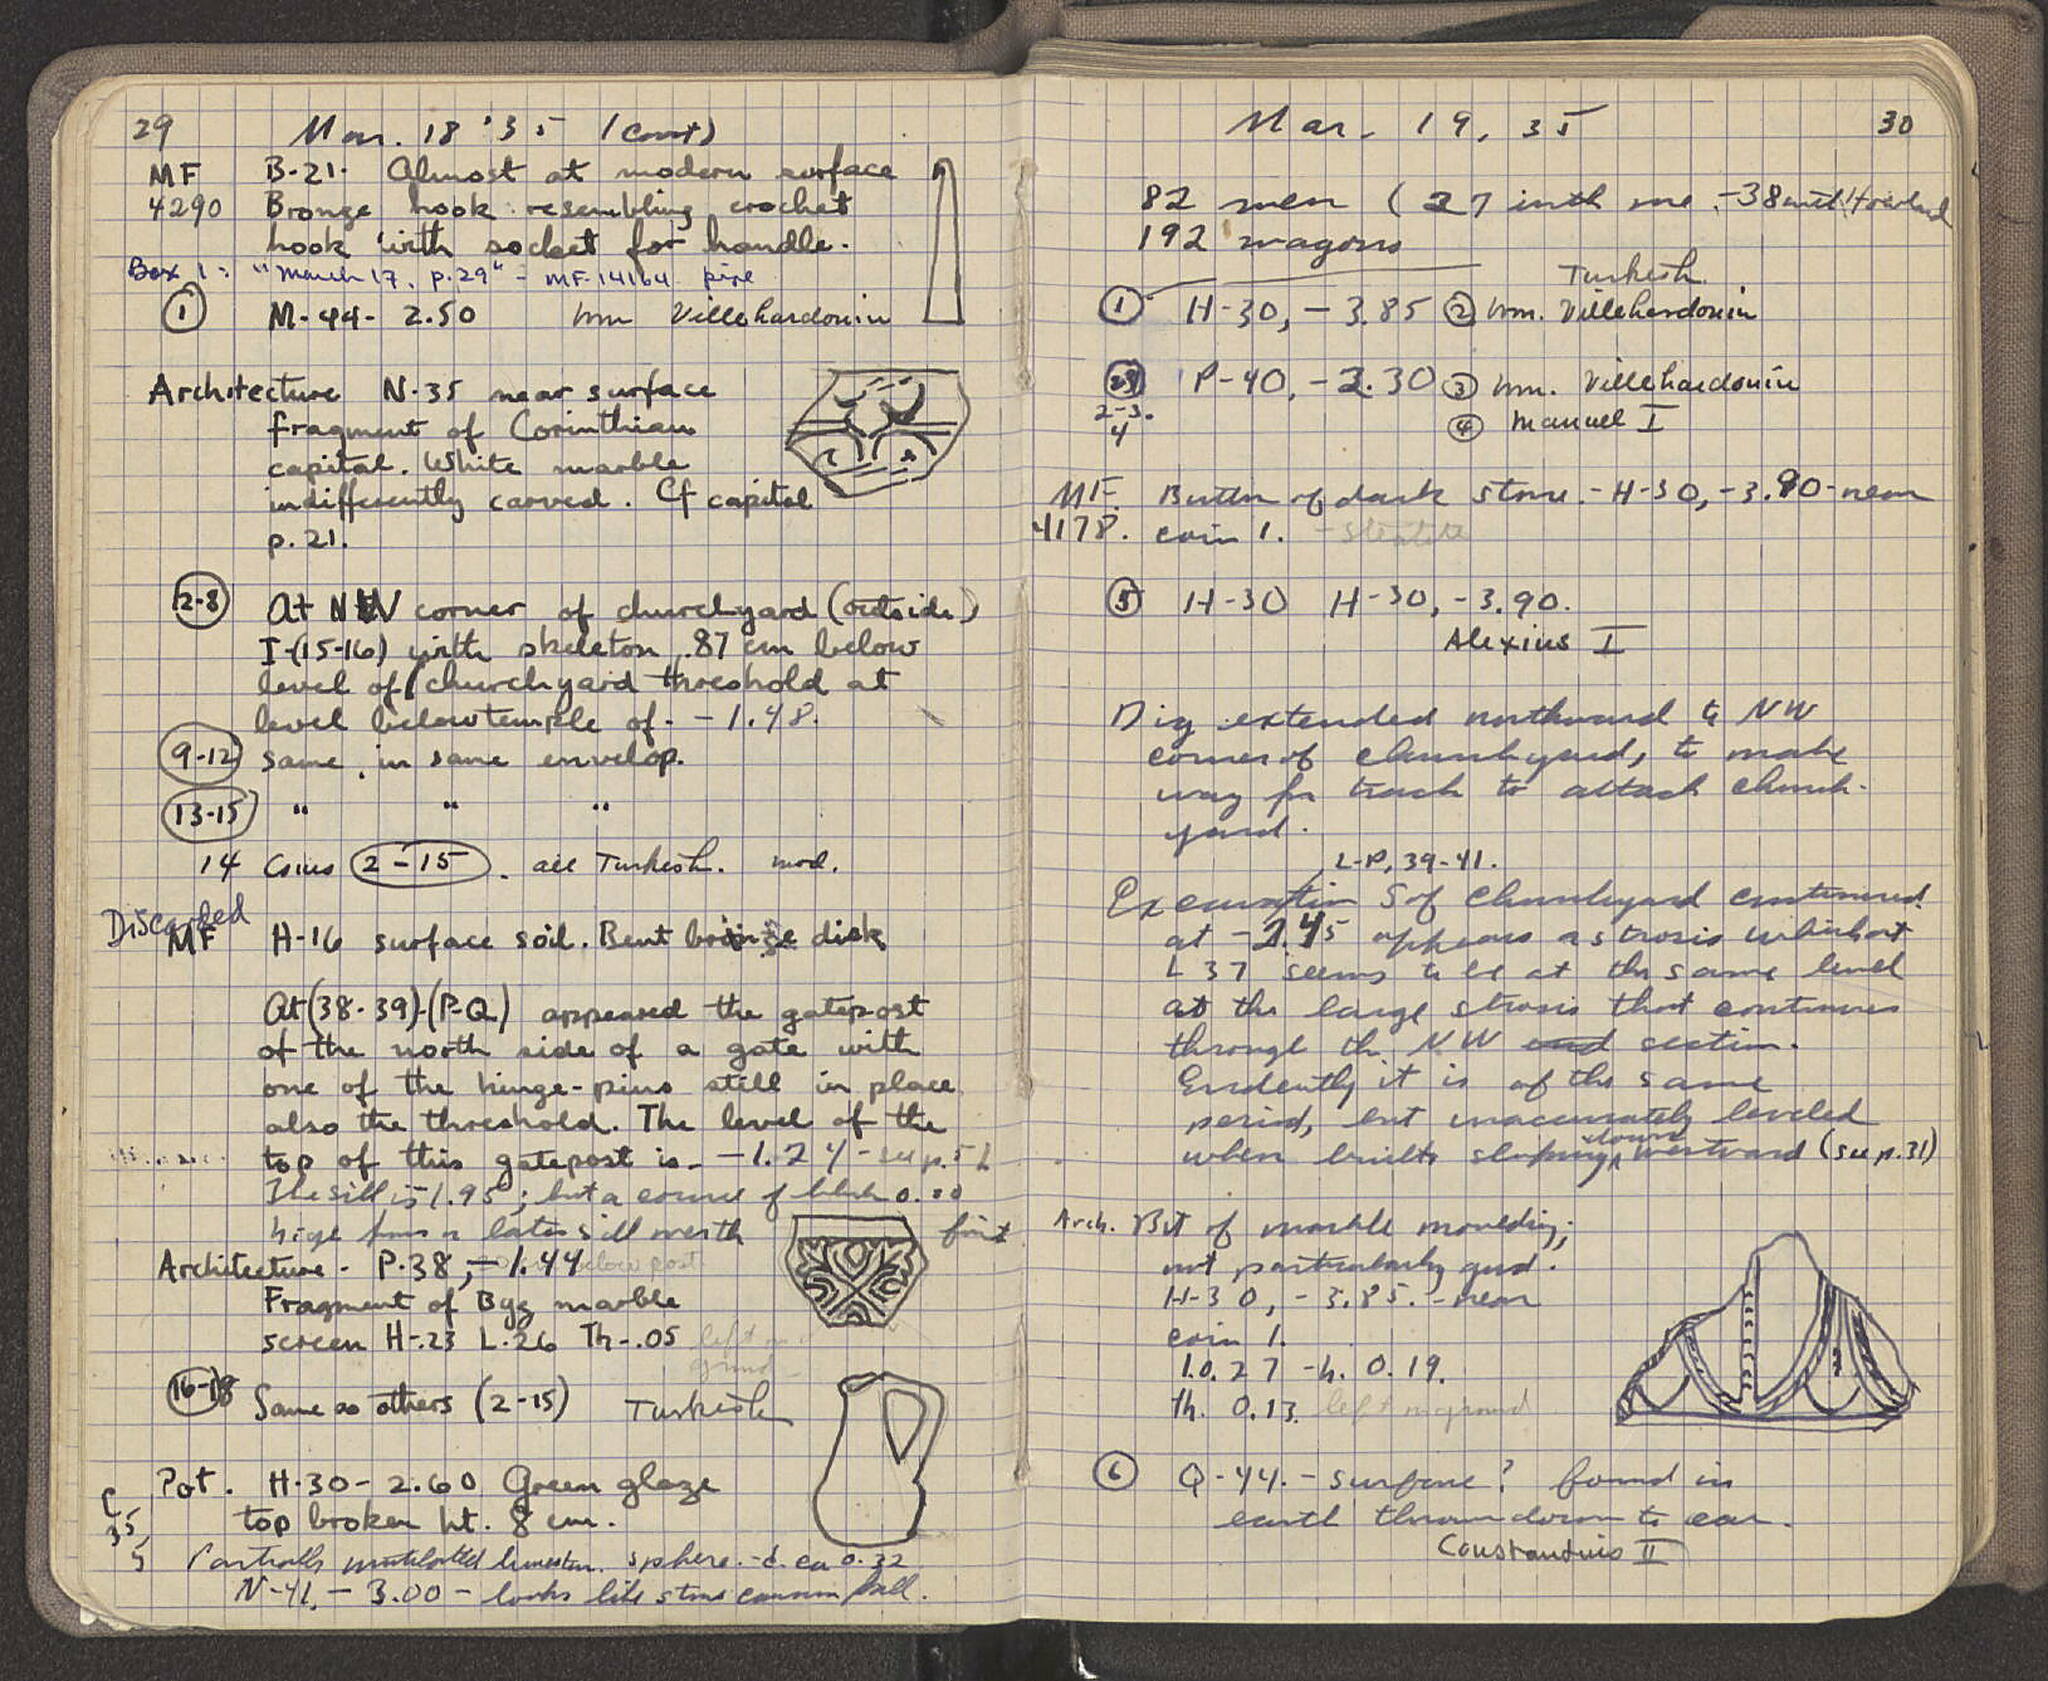 29 Mar. 18 '35 (cont)
MF B-21. Almost at modern surface
4290 Bronze hook resembling crochet
hook with socket for handle.
Box 1: "March 17, p. 29" - MF-14164 pipe
① M-44- 2.50 Wm Villehardouin
Architecture N-35 near surface
fragment of Corinthian
capital. White marble
indifferently carved. Cf capital
p. 21.
2-8 At NW corner of churchyard (outside)
I-(15-16) with skeleton .87 cm below
level of churchyard threshold at
level below temple of - -1.48.
9-12 same, in same envelop.
13-15 " " "
14 Coins 2-15. all Turkish. mod.
Discarded
MF H-16 surface soil. Bent bronze disk
At (38-39)-(P-Q) appeared the gatepost
of the north side of a gate with
one of the hinge-pins still in place
also the threshold. The level of the
top of this gatepost is - -1.24 - see p. 51
The sill is -1.95; but a course of blocks
high forms a later sill north
Architecture - P-38, -1.44 below post
Fragment of Byz marble
screen H-.23 L.26 Th-.05 left on
ground
16-18 Same as others (2-15) Turkish
Pot. H-30- 2.60 Green glaze
C
35
5
top broken ht. 8 cm.
Partially mutilated limestone sphere. - d. ca 0.32
N-41, - 3.00 - looks like stone cannon ball.
Mar. 19, 35 30
82 men (27 with me, -38 with Howland
192 wagons
Turkish
① H-30, -3.85 ② Wm. Villehardouin
P-40, -2.30 ③ Wm. Villehardouin
2-3.
4
④ Manuel I
MF. Button of dark stone. - H-30, -3.90 - near
4178. coin 1. - Steatite
⑤ H-30 H-30, -3.90.
Alexius I
Dig extended northward to NW
corner of churchyard, to make
way for track to attack church-
yard.
L-P, 39-41.
Excavation S of churchyard continued.
at -2.45 appears a strosis which at
L 37 seems to be at the same level
as the large strosis that continues
through the NW end section.
Evidently it is of the same
period, but inaccurately leveled
down
when built, sloping westward (see p. 31)
Arch. Bit of marble moulding;
not particularly good.
H-30, -3.85. - near
coin 1.
l. 0.27 - h. 0.19.
Th. 0.13. left on ground
⑥ Q-44. - surface? found in
earth thrown down to car.
Constantinus II